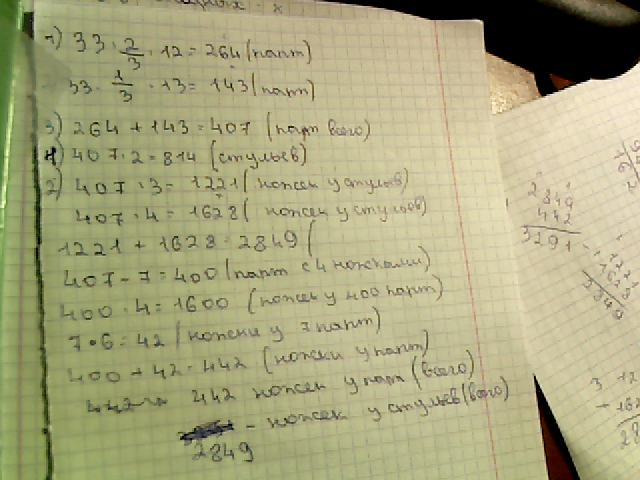 1) 33 · 2/3 · 12 = 264 (парт)
33 · 1/3 · 13 = 143 (парт)
3) 264 + 143 = 407 (парт всего)
4) 407 · 2 = 814 (стульев)
2) 407 · 3 = 1221 (ножек у стульев)
407 · 4 = 1628 (ножек у стульев)
1221 + 1628 = 2849 (
407 - 7 = 400 (парт с 4 ножками)
400 · 4 = 1600 (ножек у 400 парт)
7 · 6 = 42 (ножки у 7 парт)
400 + 42 = 442 (ножки у парт)
442 ножек у парт (всего)
- ножек у стульев (всего)
2849
2849
442
3291
1221
1628
2849